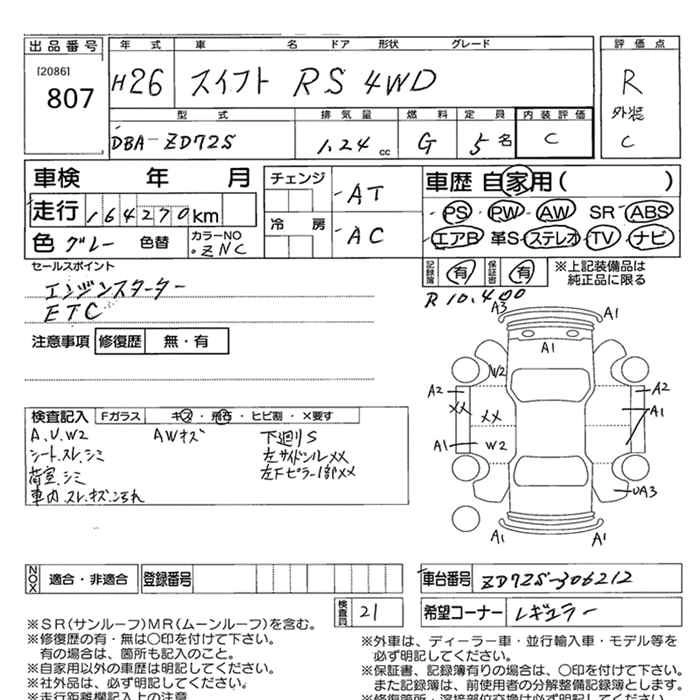 出品番号 年式 車名 ドア 形状 グレード 評価点
[2086]
807
H26 スイフト RS 4WD R
外装
C
型式 排気量 燃料 定員 内装評価
DBA-ZD72S 1.24 cc G 5名 C
車検 年 月 チェンジ AT 車歴 自家用( )
走行 164270km PS PW AW SR ABS
冷房 AC
色 グレー 色替 カラーNO ZNC エアB 革S ステレオ TV ナビ
セールスポイント 記録簿 有 保証書 有 ※上記装備品は
純正品に限る
エンジンスターター R10.400
ETC
A3 A1
注意事項 修復歴 無・有 A1
W2
A2 A2
XX XX A1
検査記入 Fガラス キズ・飛石・ヒビ割・×要す
A.U.W2 AWキズ 下廻りS
A1 W2
シートスレ.シミ 左サイドシルXX
荷室.シミ 左Fピラー1部XX
UA3
車内スレキズこすれ
A1 A1
NOX 適合・非適合 登録番号 車台番号 ZD72S-306212
検査員 21 希望コーナー レギュラー
※SR(サンルーフ)MR(ムーンルーフ)を含む。
※修復歴の有・無は〇印を付けて下さい。
有の場合は、箇所も記入のこと。
※自家用以外の車歴は明記してください。
※社外品は、必ず明記してください。
※走行距離欄記入上の注意
※外車は、ディーラー車・並行輸入車・モデル等を
必ず明記してください。
※保証書、記録簿有りの場合は、〇印を付けて下さい。
また記録簿は、前使用者の分解整備記録簿とします。